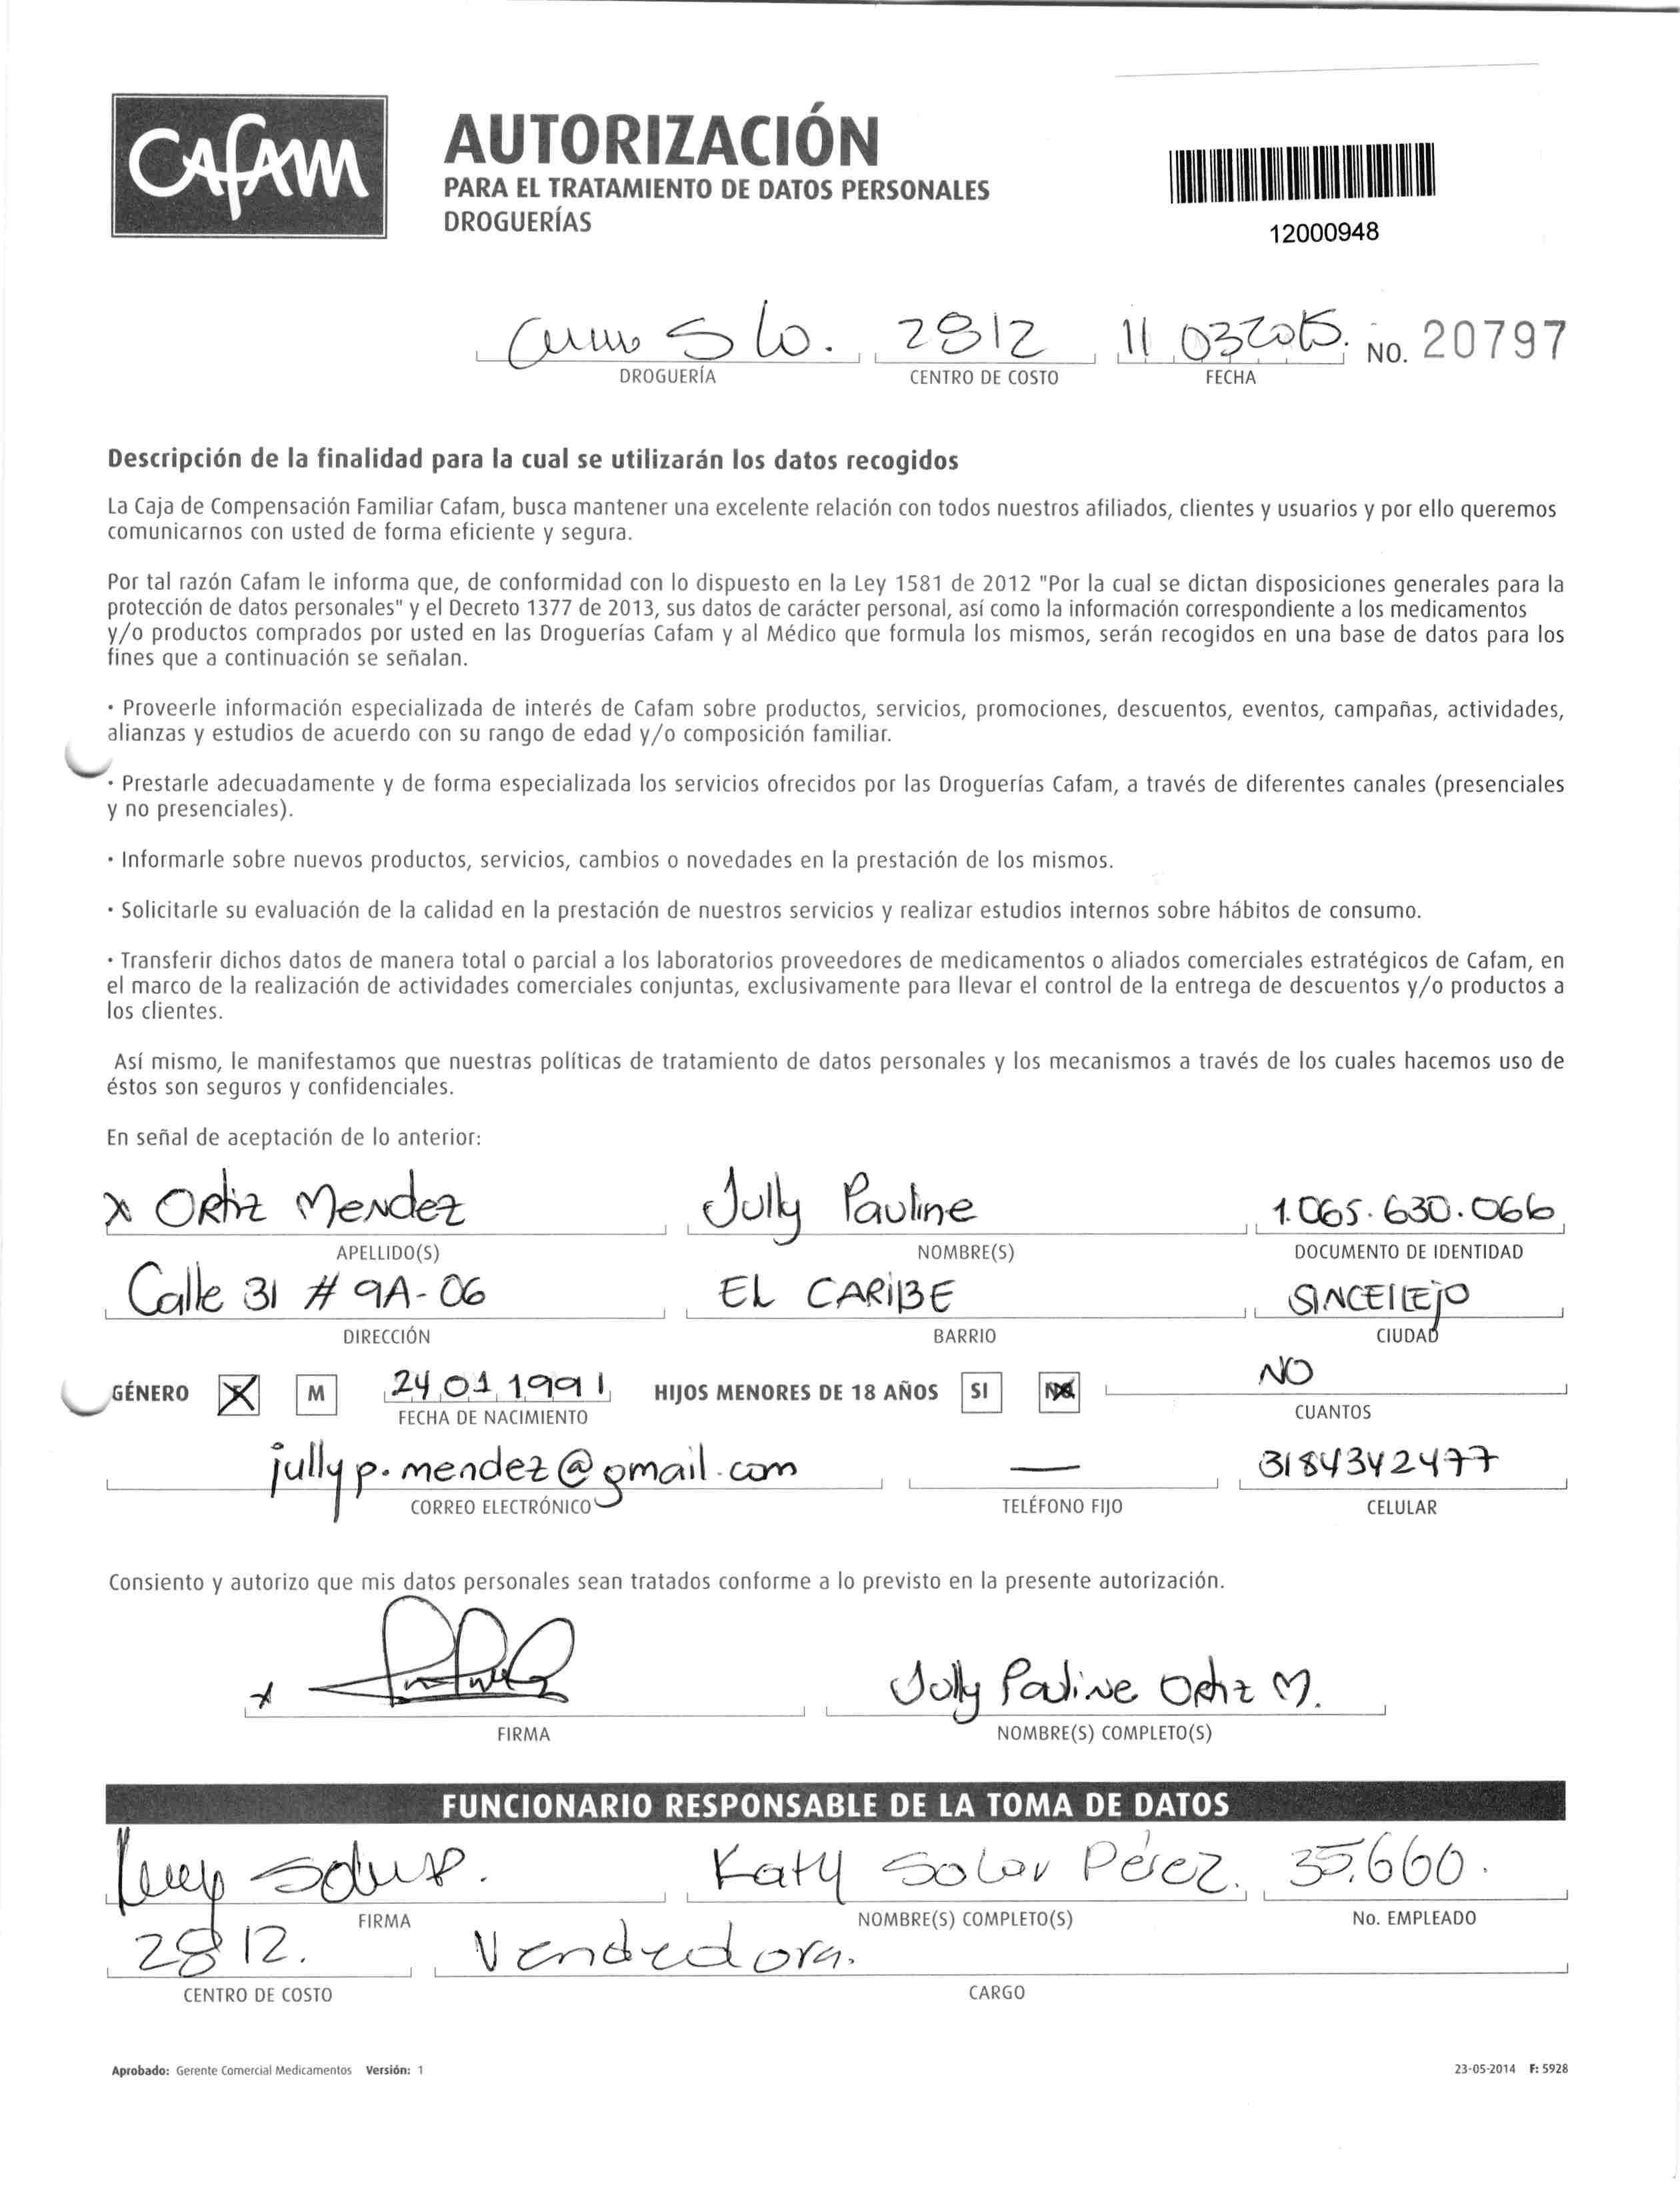 Cafam
AUTORIZACIÓN
PARA EL TRATAMIENTO DE DATOS PERSONALES
DROGUERÍAS
12000948
2812 11 03 2015. NO. 20797
DROGUERÍA CENTRO DE COSTO FECHA
Descripción de la finalidad para la cual se utilizarán los datos recogidos
La Caja de Compensación Familiar Cafam, busca mantener una excelente relación con todos nuestros afiliados, clientes y usuarios y por ello queremos
comunicarnos con usted de forma eficiente y segura.
Por tal razón Cafam le informa que, de conformidad con lo dispuesto en la Ley 1581 de 2012 "Por la cual se dictan disposiciones generales para la
protección de datos personales" y el Decreto 1377 de 2013, sus datos de carácter personal, así como la información correspondiente a los medicamentos
y/o productos comprados por usted en las Droguerías Cafam y al Médico que formula los mismos, serán recogidos en una base de datos para los
fines que a continuación se señalan.
· Proveerle información especializada de interés de Cafam sobre productos, servicios, promociones, descuentos, eventos, campañas, actividades,
alianzas y estudios de acuerdo con su rango de edad y/o composición familiar.
· Prestarle adecuadamente y de forma especializada los servicios ofrecidos por las Droguerías Cafam, a través de diferentes canales (presenciales
y no presenciales).
· Informarle sobre nuevos productos, servicios, cambios o novedades en la prestación de los mismos.
· Solicitarle su evaluación de la calidad en la prestación de nuestros servicios y realizar estudios internos sobre hábitos de consumo.
· Transferir dichos datos de manera total o parcial a los laboratorios proveedores de medicamentos o aliados comerciales estratégicos de Cafam, en
el marco de la realización de actividades comerciales conjuntas, exclusivamente para llevar el control de la entrega de descuentos y/o productos a
los clientes.
Así mismo, le manifestamos que nuestras políticas de tratamiento de datos personales y los mecanismos a través de los cuales hacemos uso de
éstos son seguros y confidenciales.
En señal de aceptación de lo anterior:
x Ortiz Mendez Jully Pauline 1.065.630.066
APELLIDO(S) NOMBRE(S) DOCUMENTO DE IDENTIDAD
Calle 31 # 9A-06 EL CARIBE SINCELEJO
DIRECCIÓN BARRIO CIUDAD
GÉNERO F M 24 01 1991 HIJOS MENORES DE 18 AÑOS SI NO NO
FECHA DE NACIMIENTO CUANTOS
jullyp.mendez@gmail.com — 3184342477
CORREO ELECTRÓNICO TELÉFONO FIJO CELULAR
Consiento y autorizo que mis datos personales sean tratados conforme a lo previsto en la presente autorización.
x Jully Pauline Ortiz M.
FIRMA NOMBRE(S) COMPLETO(S)
FUNCIONARIO RESPONSABLE DE LA TOMA DE DATOS
Katy Solar Pérez. 35.660.
FIRMA NOMBRE(S) COMPLETO(S) No. EMPLEADO
2812. Vendedora.
CENTRO DE COSTO CARGO
Aprobado: Gerente Comercial Medicamentos Versión: 1 23-05-2014 F: 5928